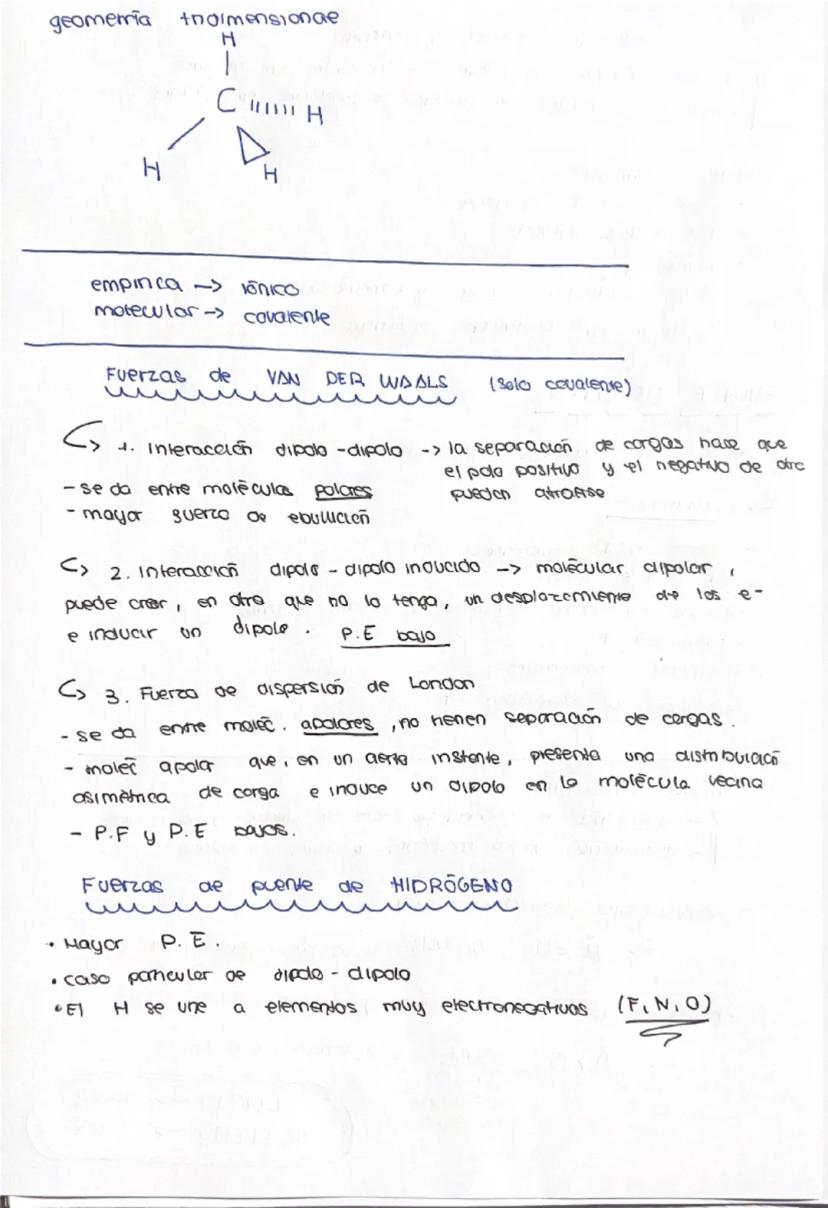 geometría tridimensional
H
C H
H
H
empírica -> iónico
molecular -> covalente
Fuerzas de VAN DER WAALS (solo covalente)
1. Interacción dipolo-dipolo -> la separación de cargas hace que
el polo positivo y el negativo de otra
- se da entre moléculas polares
pueden atraerse
- mayor fuerza de ebullición
2. Interacción dipolo - dipolo inducido -> molécular dipolar,
puede crear, en otra que no lo tenga, un desplazamiento de los e-
e inducir un dipolo. P.E bajo
3. Fuerza de dispersión de London
- se da entre moléc. apolares, no tienen separación de cargas.
- moléc apolar que, en un cierto instante, presenta una distribución
asimétrica de carga e induce un dipolo en la molécula vecina
- P.F y P.E bajos.
Fuerzas de puente de HIDRÓGENO
• Mayor P.E.
• caso particular de dipolo - dipolo
• El H se une a elementos muy electronegativos (F, N, O)